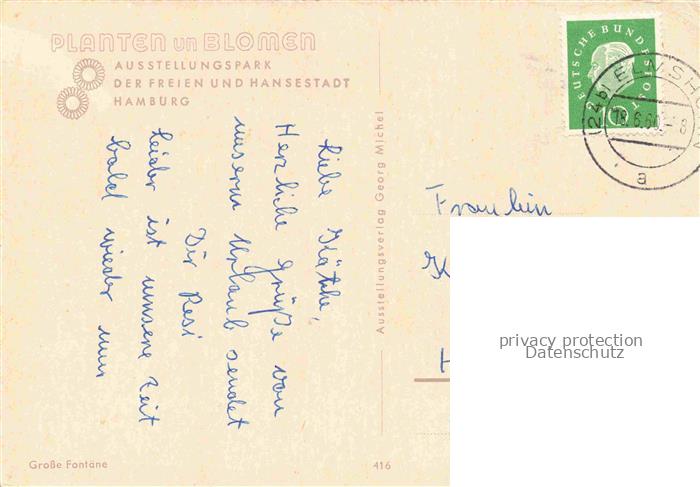 PLANTEN un BLOMEN
AUSSTELLUNGSPARK
DER FREIEN UND HANSESTADT
HAMBURG
Liebe Kätche,
Herzliche Grüße von
unserm Urlaub sendet
Dir Resi
leider ist unsere Zeit
bald wieder um
Große Fontäne
416
Ausstellungsverlag Georg Michel
DEUTSCHE BUNDESPOST
(24b) ELMSH
18.6.60
8
a
Fräulein
K
H
privacy protection
Datenschutz